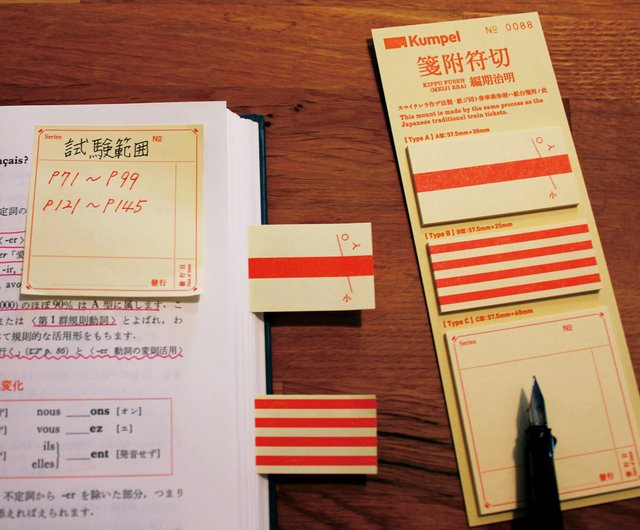 çais?
Series
№
試験範囲
P71～P99
P121～P145
発行
発行日
Date of issue
定詞の
-er〉
er「愛
-ir, 
000) のほぼ90% は A 型に属します。こ
または〈第1群規則動詞〉とよばれ、わ
て規則的な活用形をもちます.
行く」(☞ p. 86) と〈-er 動詞の変則活用〉
変化
nous ___ons [オン]
vous ___ez [エ]
ils
elles} ___ent [発音せず]
不定詞から -er を除いた部分, つまり
添えればえられます.
小
Kumpel
№ 0088
箋附符切
KIPPU FUSEN
(MEIJI ERA)
編期治明
This mount is made by the same process as the
Japanese traditional train tickets.
[Type A] A型:57.5mm×30mm
小
[Type B] B型:57.5mm×25mm
[Type C] C型:57.5mm×60mm
Series
№
発行